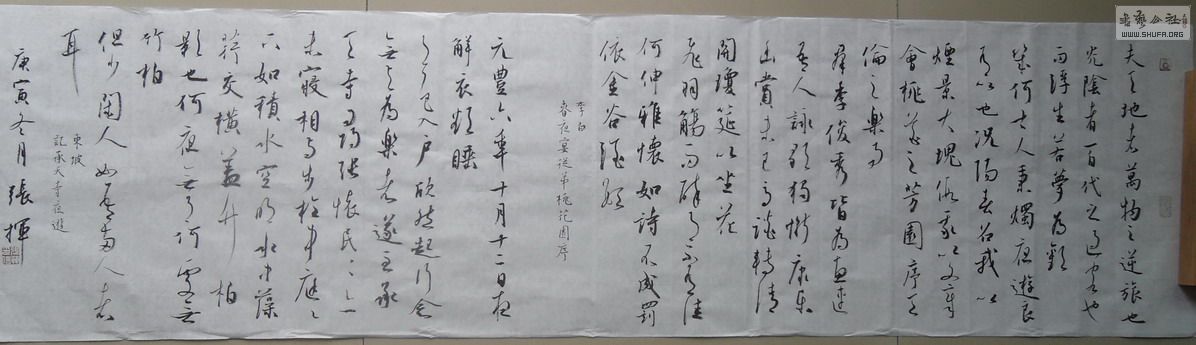 夫天地者萬物之逆旅也
光陰者百代之過客也
而浮生若夢為歡
幾何古人秉燭夜遊良
有以也況陽春召我以
煙景大塊假我以文章
會桃花之芳園序天
倫之樂事
羣季俊秀皆為惠連
吾人詠歌獨慚康樂
幽賞未已高談轉清
開瓊筵以坐花
飛羽觴而醉月不有佳
何伸雅懷如詩不成罰
依金谷酒數
李白
春夜宴從弟桃花園序
元豐六年十月十二日夜
解衣欲睡
月色入戶欣然起行念
無與為樂者遂至承
天寺尋張懷民民亦
未寢相與步於中庭庭
下如積水空明水中藻
荇交橫蓋竹柏
影也何夜無月何處無
竹柏
但少閑人如吾兩人者
耳
東坡
記承天寺夜遊
庚寅冬月 張揮
書藝公社
WWW.SHUFA.ORG